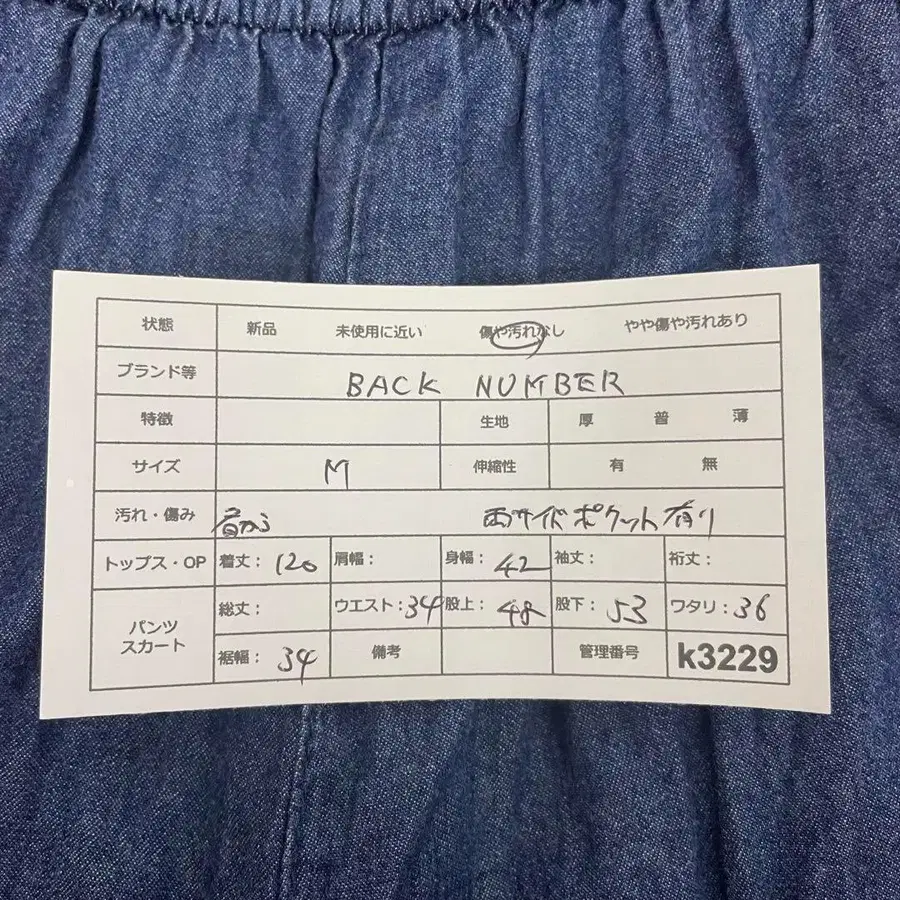 状態 新品 未使用に近い 傷や汚れなし やや傷や汚れあり
ブランド等 BACK NUMBER
特徴 生地 厚 普 薄
サイズ M 伸縮性 有 無
汚れ・傷み 肩から 両サイドポケット有り
トップス・OP 着丈: 120 肩幅: 身幅: 42 袖丈: 裄丈:
パンツ スカート
総丈: ウエスト: 34 股上: 48 股下: 53 ワタリ: 36
裾幅: 34 備考 管理番号 k3229